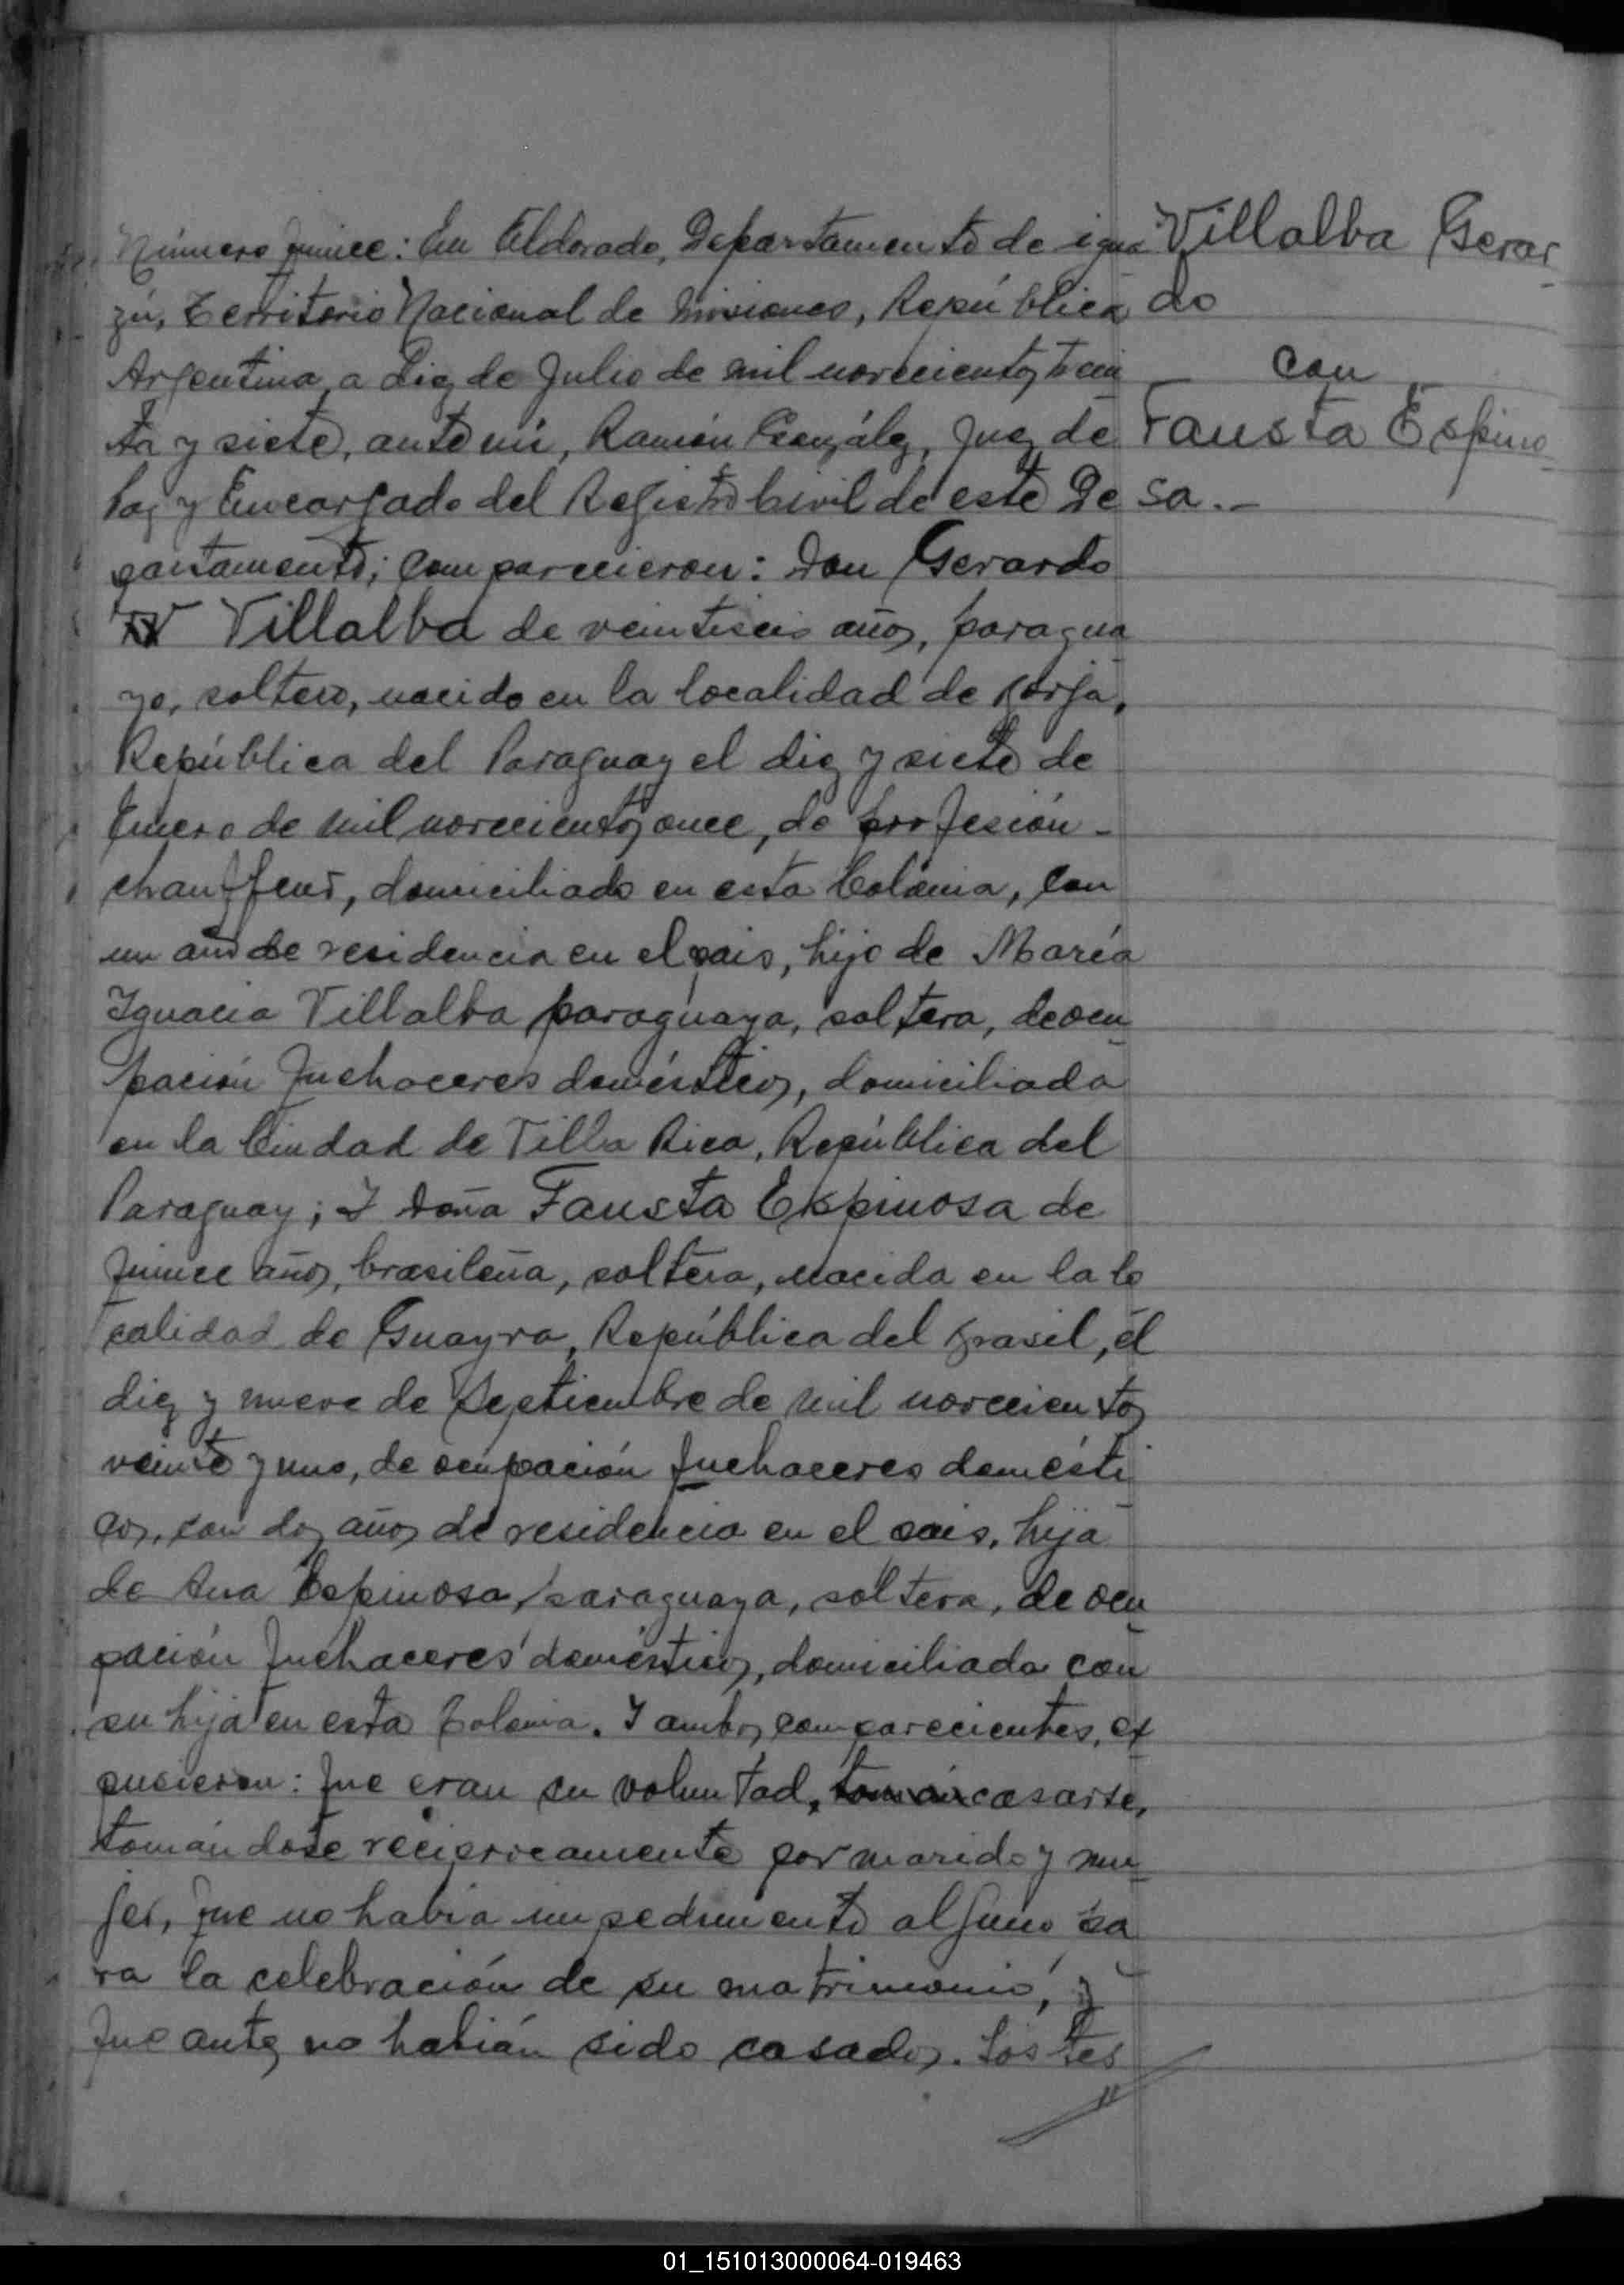 Villalba Gerar
do
con
Fausta Espino
sa.-
Número quince: En Eldorado, Departamento de igua
zú, Territorio Nacional de Misiones, República
Argentina, a diez de Julio de mil novecientos trein
ta y siete, ante mi, Ramón González, Juez de
Paz y Encargado del Registro Civil de este De
partamento; comparecieron: Don Gerardo
Villalba de veintiseis años, paragua
yo, soltero, nacido en la localidad de Borja,
República del Paraguay el diez y siete de
Enero de mil novecientos once, de profesión -
chauffeur, domiciliado en esta Colonia, con
un año de residencia en el pais, hijo de María
Ignacia Villalba paraguaya, soltera, de ocu
pación quehaceres domésticos, domiciliada
en la Ciudad de Villa Rica, República del
Paraguay; Y Doña Fausta Espinosa de
quince años, brasileña, soltera, nacida en la lo
calidad de Guayra, República del Brasil, el
diez y nueve de Septiembre de mil novecientos
veinte y uno, de ocupación quehaceres domésti
cos, con dos años de residencia en el pais, hija
de Ana Espinosa, paraguaya, soltera, de ocu
pación quehaceres domésticos, domiciliada con
su hija en esta Colonia. Y ambos comparecientes, ex
pusieron: Que eran su voluntad, casarse,
tomándose reciprocamente por marido y mu
jer, que no habia impedimento alguno pa
ra la celebración de su matrimonio, y
que antes no habián sido casados. Los tes
01_151013000064-019463